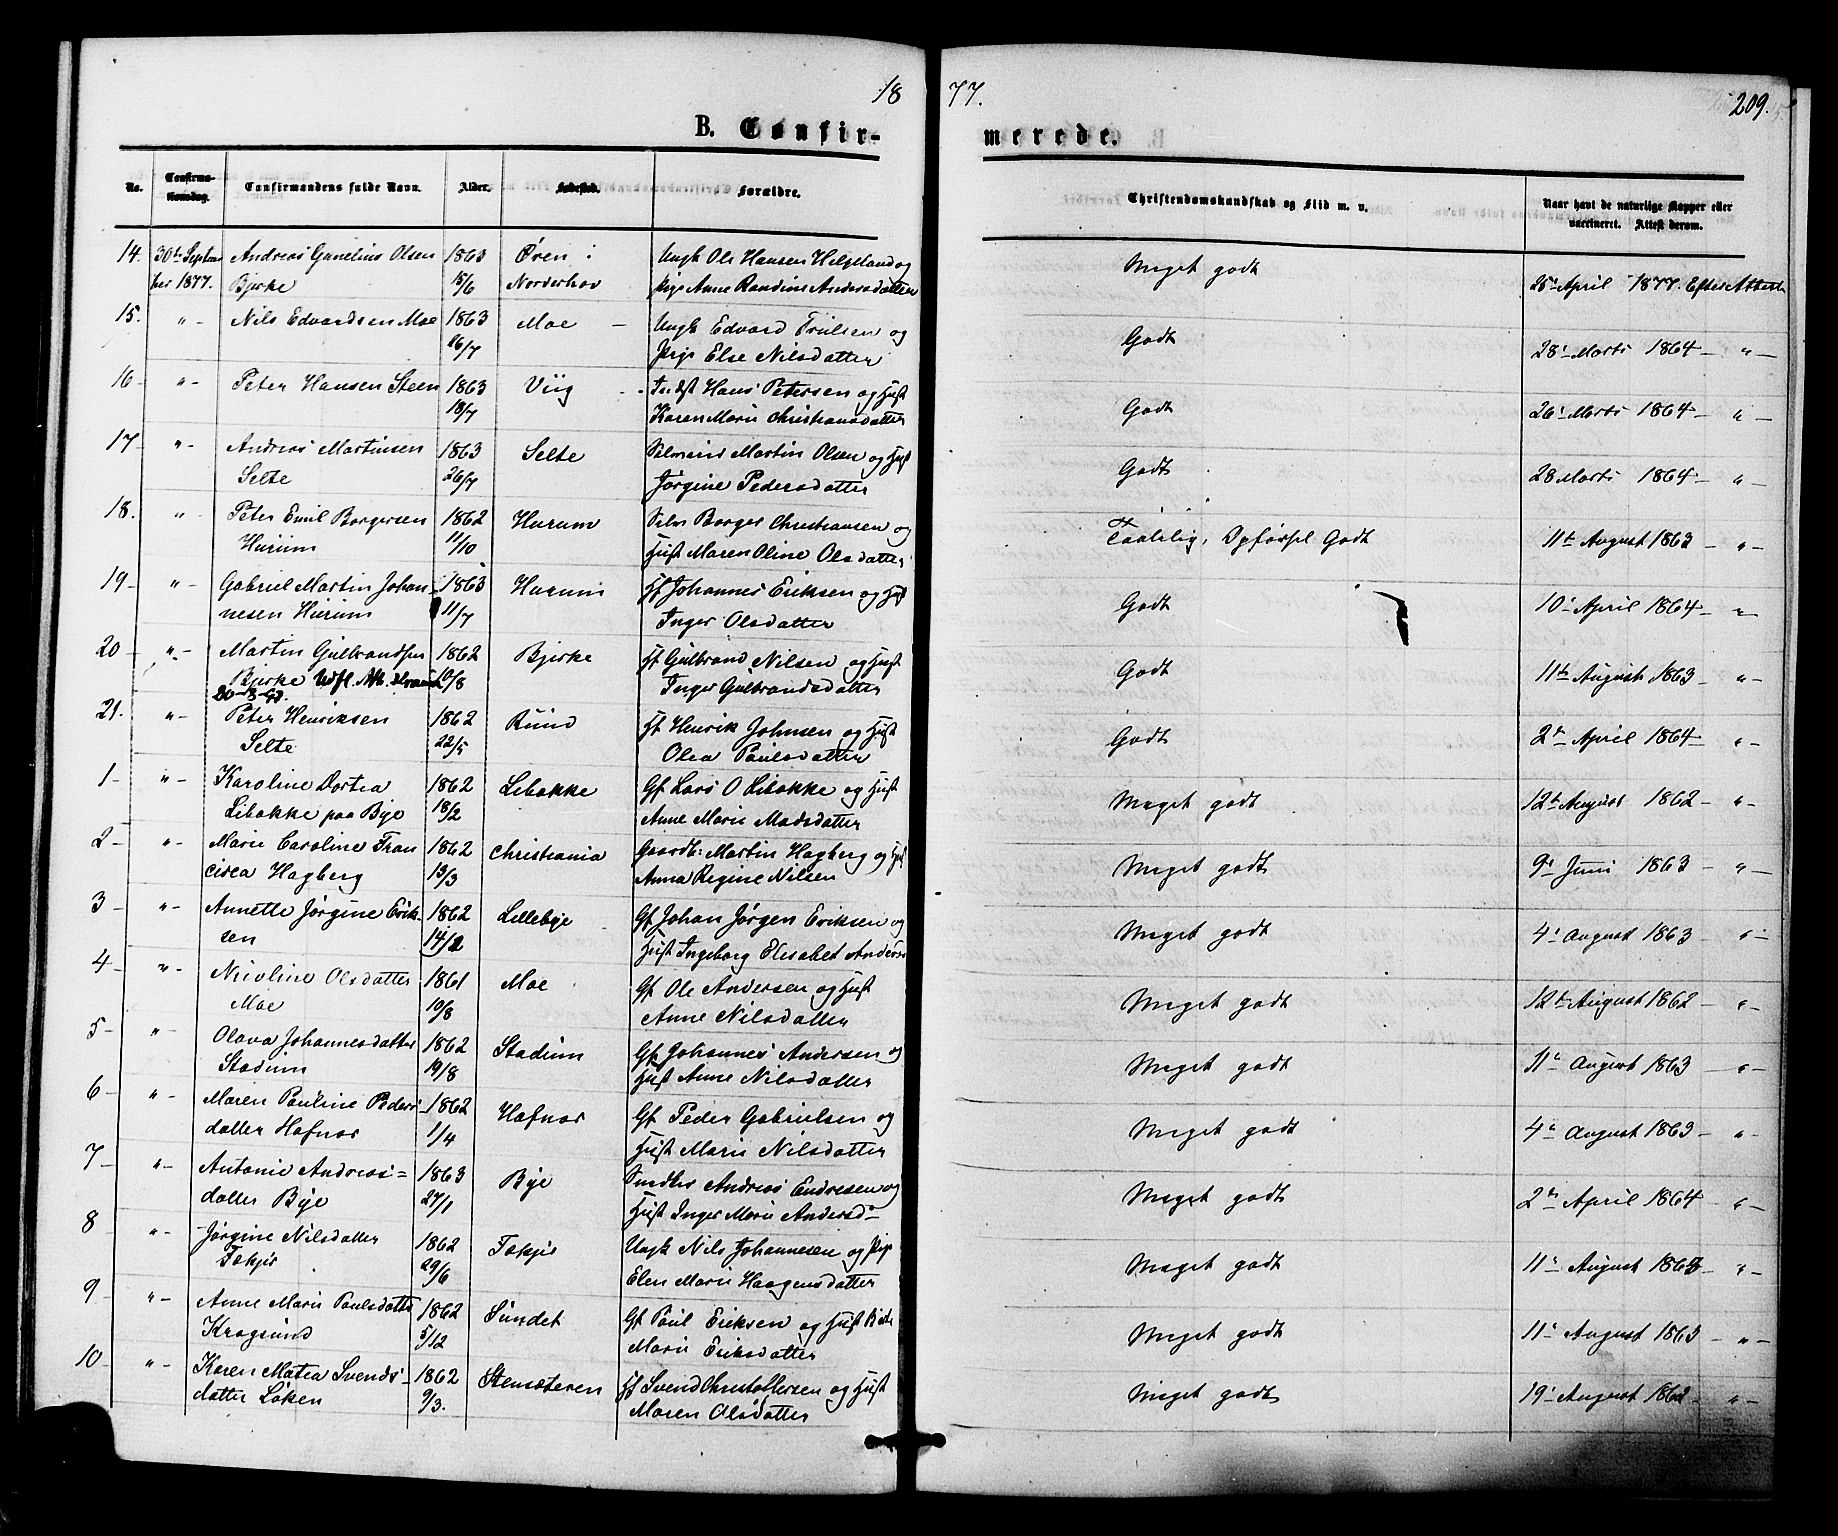 18 77. 209.
B. Confirmerede.
No. Confirmationsdag. Confirmandens fulde Navn. Alder. Fødested. Forældre. Christendomskundskab og Flid m. v. Naar havt de naturlige Kopper eller vaccineret. Attest derom.
14. 30te Septem- Andreas Olsen 1863 Øren i Ungk Ole Hansen Helgeland og Meget godt
ber 1877. Bjerke 15/6 Norderhov Pige Anne Randine Andersdatter 25de April 1877. Efter Attest
15. " - Nils Edvardsen Moe 1863 Moe - Ungk Edvard Trulsen og Godt
26/7 Pige Else Nilsdatter 28' Marts 1864 - " -
16 - " - Peter Hansen Steen 1863 Viig - Indst Hans Petersen og Hust Godt
18/7 Karen Marie Christiansdatter 26' Marts 1864 - " -
17 - " - Andreas Martinsen 1863 Selte Selveier Martin Olsen og Hust Godt
Selte 26/7 Jørgine Pedersdatter 28 Marts 1864 - " -
18. " - Peter Emil Borgersen 1862 Hurum Selv Borger Christiansen og Taalelig, Opførsel Godt
Hurum 11/10 Hust Maren Oline Olsdatter 11te August 1863 - " -
19 - " - Gabriel Martin Johan- 1863 Hurum Hf Johannes Eriksen og Hust Godt
nesen Hurum 11/7 Inger Olsdatter 10' April 1864 - " -
20 - " - Martin Gulbrandsen 1862 Bjerke Hf Gulbrand Nilsen og Hust Godt
Bjerke Udfl. Att. 10/8 Inger Gulbrandsdatter 11te August 1863 - " -
21. " - Peter Henriksen 1862 Rund Hf Henrik Johnsen og Hust Godt
Selte 22/5 Olea Paulsdatter 2de April 1864 - " -
1 - " - Karoline Dortea 1862 Libakke Gf Lars O Libakke og Hust Meget godt
Libakke paa Bye 18/2 Anne Marie Madsdatter 12te August 1862 - " -
2 - " - Marie Caroline Fran 1862 Christiania Gaardb: Martin Hagberg og Hust Meget godt
cisca Hagberg 13/3 Anna Regine Nilsen 9' Juni 1863 - " -
3 - " - Annette Jørgine Erik- 1862 Lillebye Gf Johan Jørgen Eriksen og Meget godt
sen 14/2 Hust Ingeborg Elisabet Anders 4' August 1863 - " -
4 - " - Nicoline Olsdatter 1861 Moe Gf Ole Andersen og Hust Meget godt
Moe 19/8 Anne Nilsdatter 12te August 1862 - " -
5 - " - Olava Johannesdatter 1862 Stadum Gf Johannes Andersen og Meget godt
Stadum 19/8 Hust Anne Nilsdatter 11' August 1863 - " -
6 - " - Maren Pauline Peders- 1862 Hafnor Gf Peder Gabrielsen og Meget godt
datter Hafnor 1/4 Hust Marie Nilsdatter 4' August 1863 - " -
7 - " - Antonie Andreas= 1863 Bye Andreas Endresen og Meget godt
datter Bye 27/1 Hust Inger Marie Andersd- 2de April 1864 - " -
8 - " - Jørgine Nilsdatter 1862 Ungk Nils Johannesen og Pige Meget godt
29/6 Elen Marie Haagensdatter 11' August 1863 - " -
9 - " - Anne Marie Paulsdatter 1862 Sundet Gf Paul Eriksen og Hust Meget godt
Kragsund 5/12 Marie Eriksdatter 11' August 1863 - " -
10 - " - Karen Matea Svends- 1862 Stensæteren Hf Svend Christoffersen og Hust Meget godt
datter Løken 9/3. Maren Olsdatter 19' August 1862 - " -